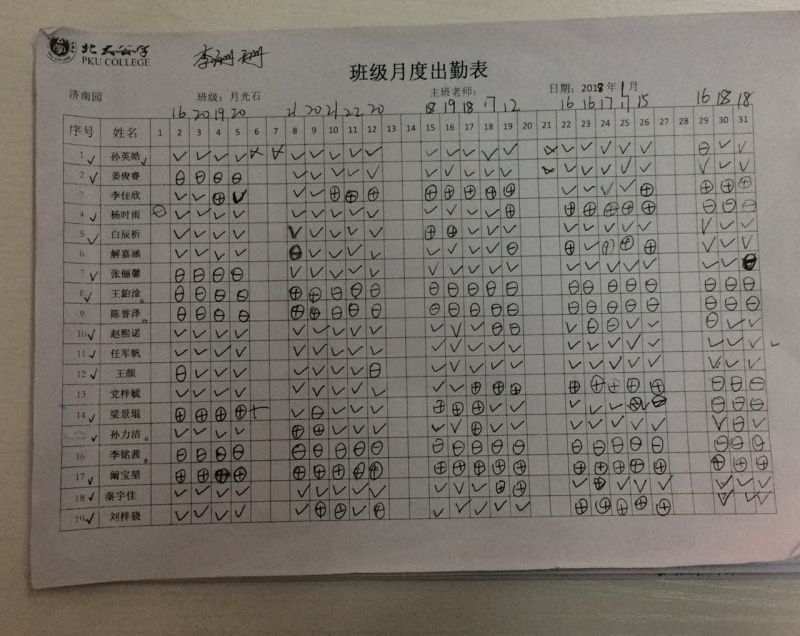 北大公学
PKU COLLEGE
李珊珊
班级月度出勤表
济南园 班级：月光石 主班老师： 日期：2018年1月
16 20 19 20 21 20 21 22 20 18 19 18 17 12 16 16 17 17 15 16 18 18
序号 姓名 1 2 3 4 5 6 7 8 9 10 11 12 13 14 15 16 17 18 19 20 21 22 23 24 25 26 27 28 29 30 31
1 ✓ 孙英皓
2 ✓ 姜俊睿
李佳欣
4 ✓ 杨时雨
5 ✓ 白辰析
6 解嘉涵
7 ✓ 张俪馨
8 ✓ 王铂淦
9 陈誉泽
10 ✓ 赵熙诺
11 ✓ 任军帆
12 ✓ 王颜
13 党梓毓
14 ✓ 梁景琨
孙力洁
16 李铭茜
17 ✓ 阚宝堃
18 ✓ 秦字佳
19 ✓ 刘梓骁